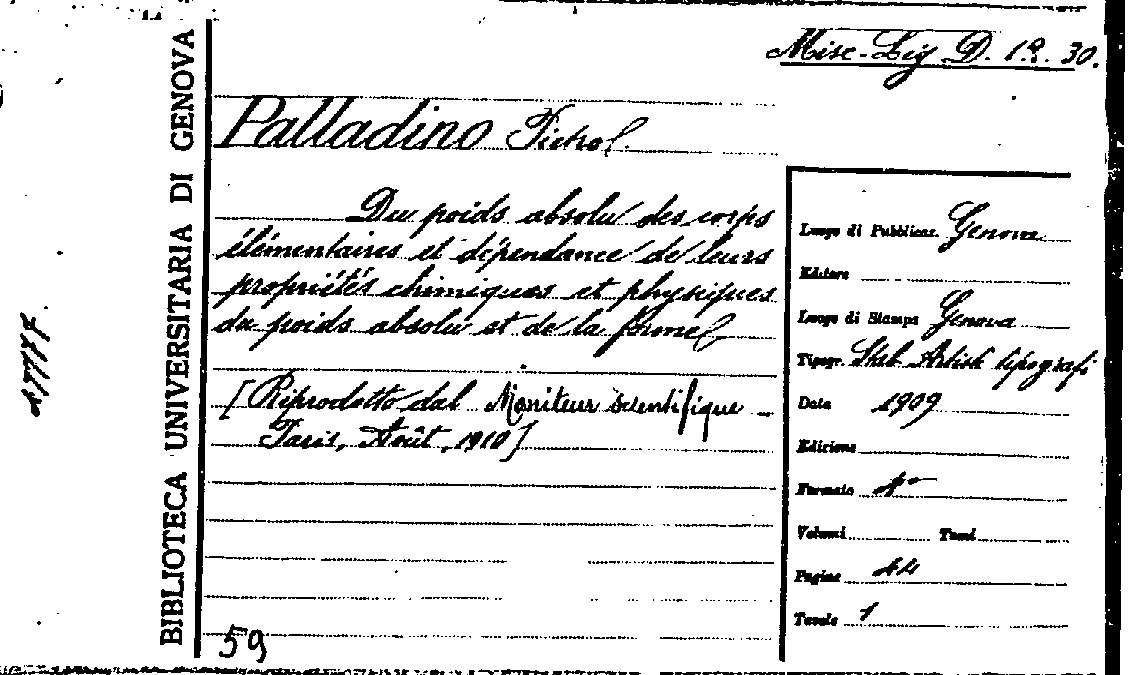 Misc. Lig D. 12. 30.
BIBLIOTECA UNIVERSITARIA DI GENOVA
Palladino Pietro
Du poids absolu des corps
élémentaires et dépendance de leurs
propriétés chimiques et physiques
du poids absolu et de la forme
[Riprodotto dal Moniteur scientifique -
Paris, Août, 1910]
59
Luogo di Pubblicaz. Genova
Editore
Luogo di Stampa Genova
Tipogr. Stab Artisti tipografi
Data 1909
Edizione
Formato 4°
Volumi Tomi
Pagine
Tavole 1